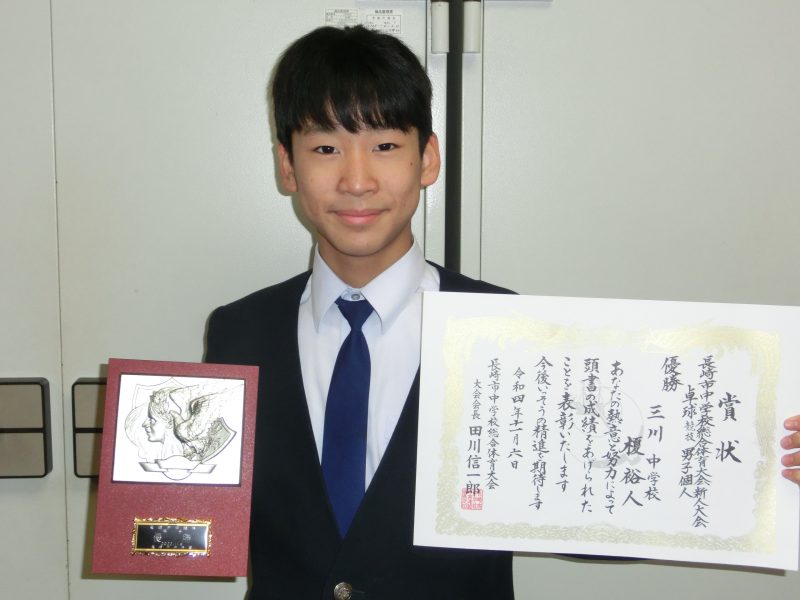 賞状
長崎市中学校総合体育大会新人大会
卓球競技 男子個人
優勝
三川中学校
榎 裕人
あなたの熱意と努力によって
頭書の成績をあげられた
ことを表彰いたします
今後いっそうの精進を期待します
令和四年十一月六日
長崎市中学校総合体育大会
大会会長 田川信一郎
優勝